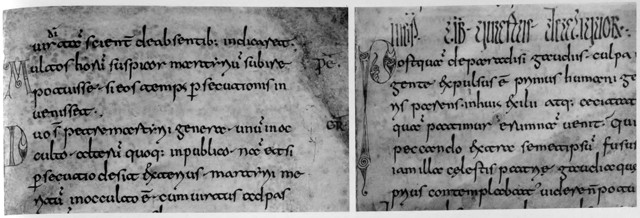 de absentib: indicaret.
Multos horū suspicor martyriū subire
potuisse. si eos temp; psecutionis in
uenisset.
Duo s petre martyrii genera. unū in oc
culto. alterū quoq; in publico. nā etsi
psecutio desit exterius. martyrii me
ritū in occulto ē. cum uirtus ad pas
Postquā de paradisi gaudiis. culpa
gente expulsus ē primus humani ge
ris parens. in huius exilii atq; cecitatis
quā patimur erumnā uenit. Qui
peccando extra semetipsū fusus
iam illa celestis patriae gaudia qu
prius contemplabat uidere ñ potu